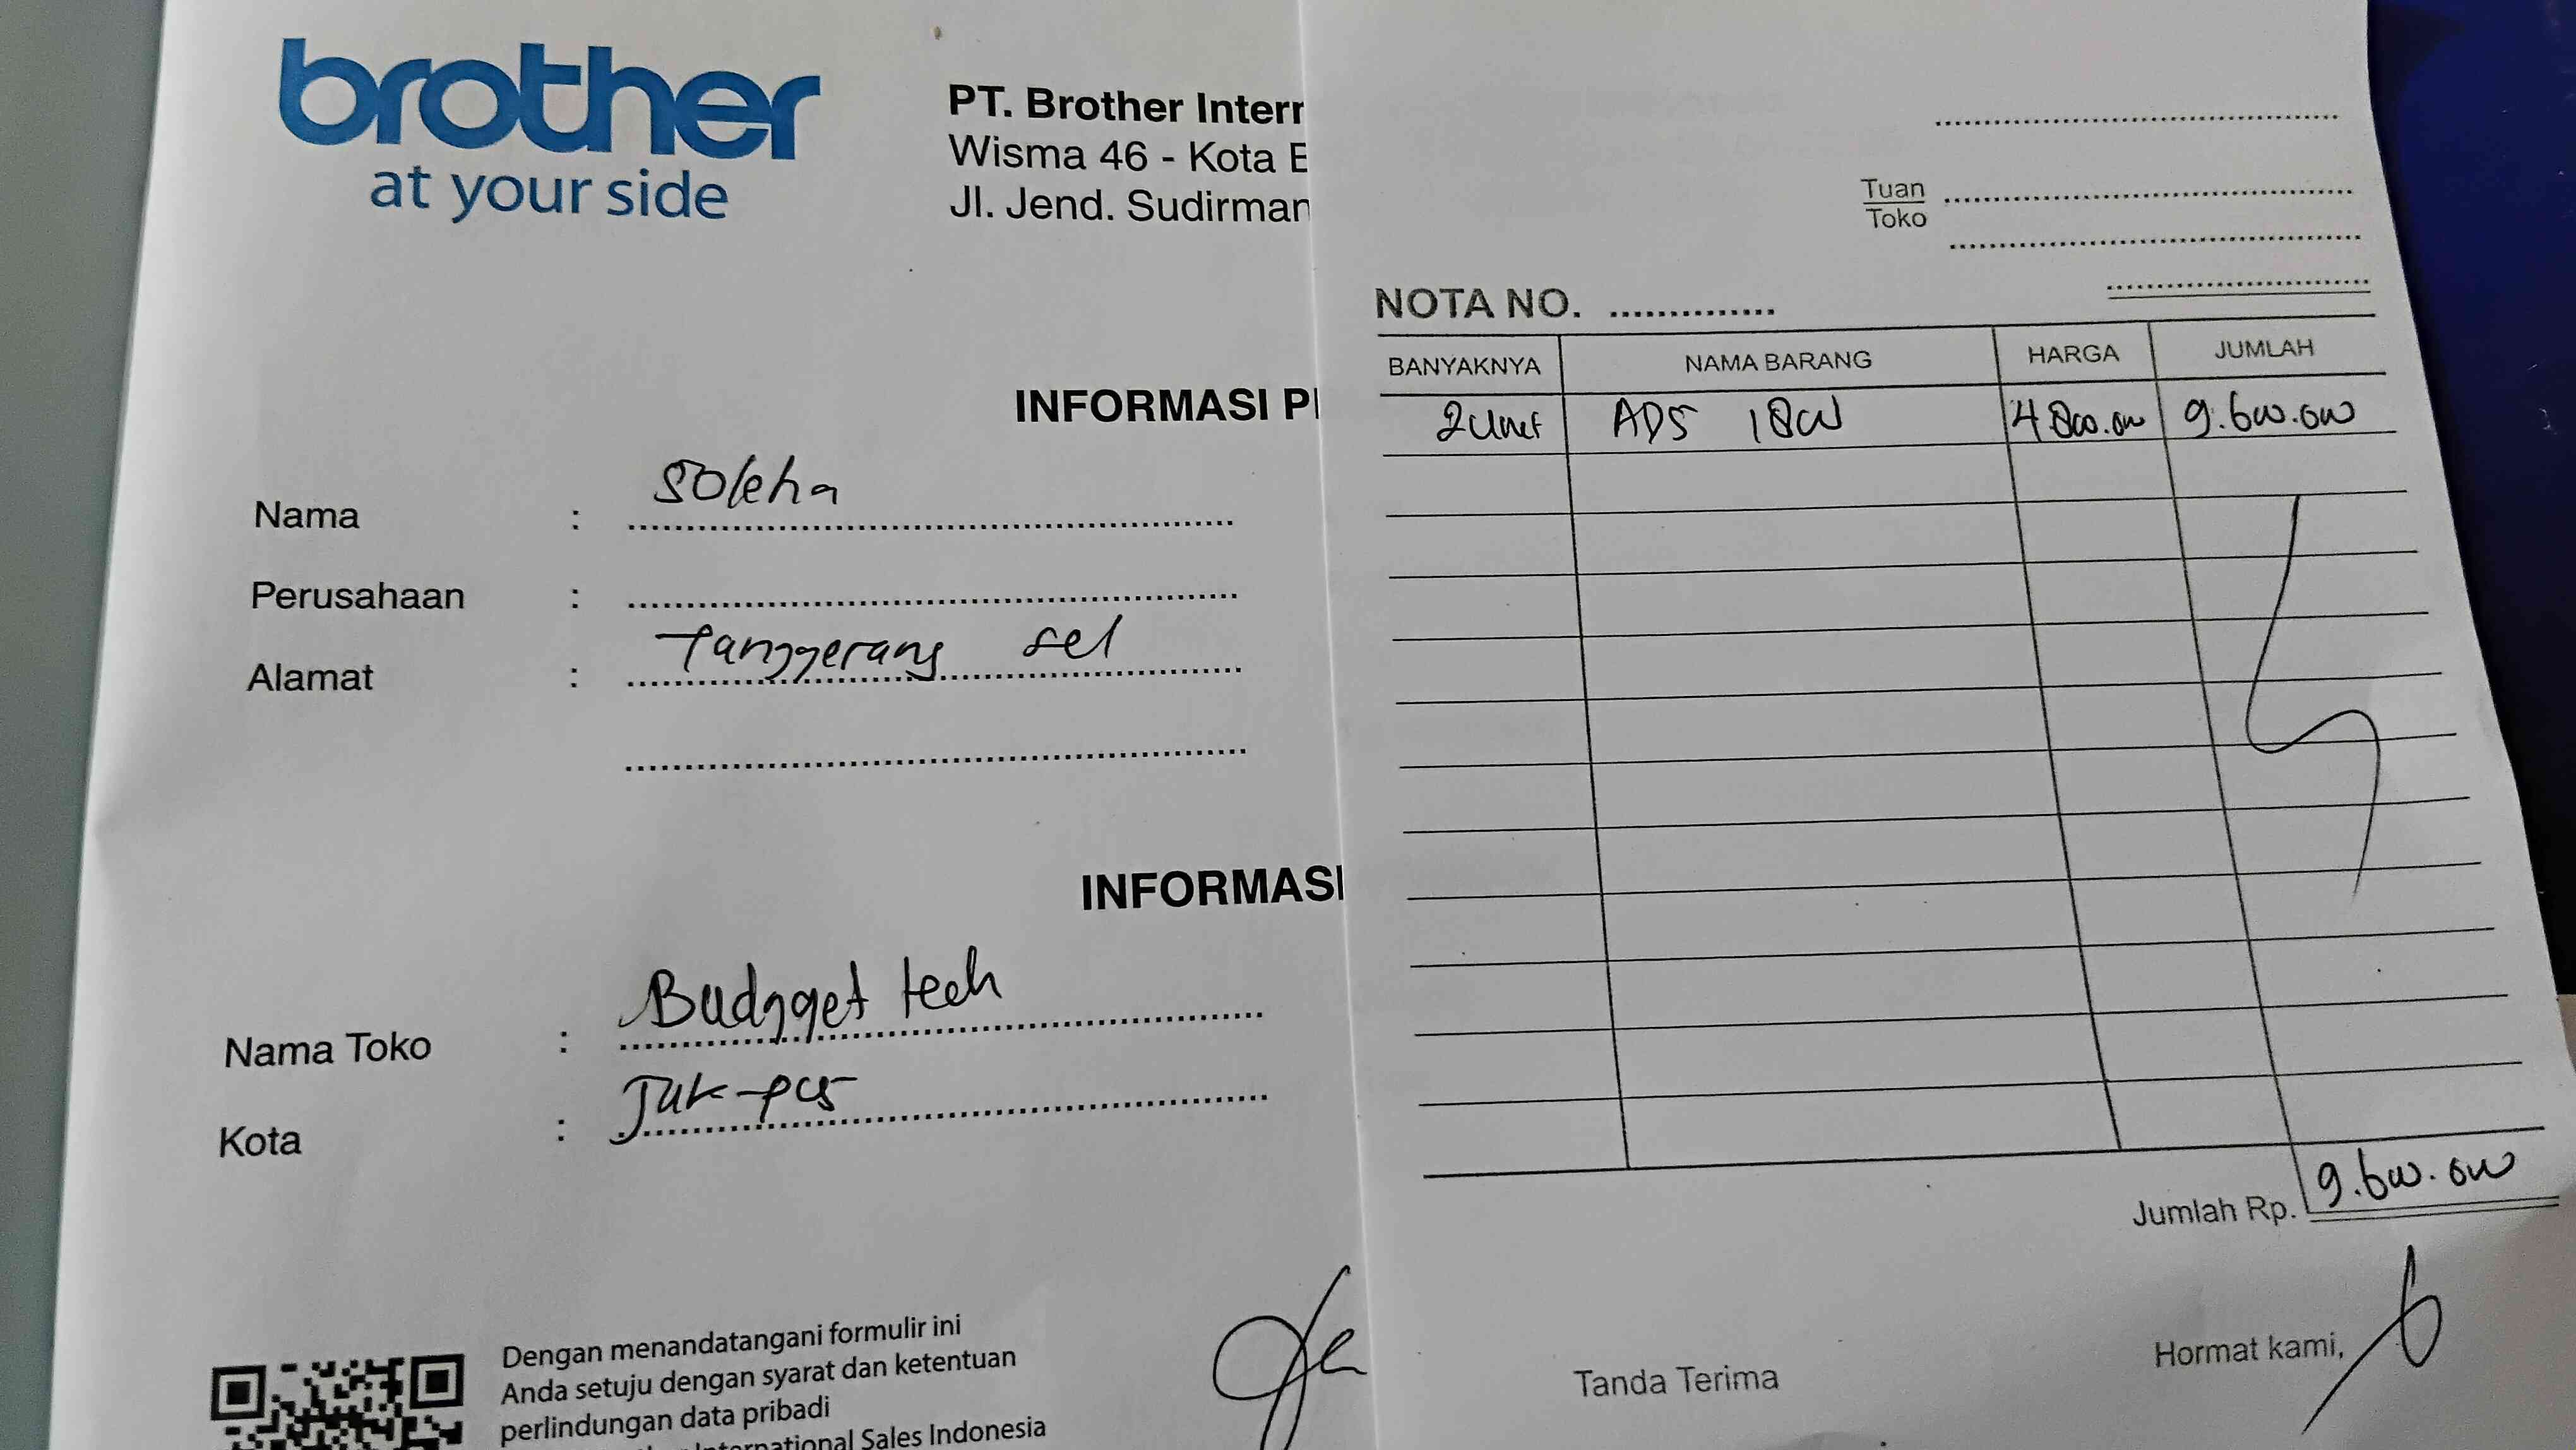 brother
at your side
PT. Brother Interr
Wisma 46 - Kota E
Jl. Jend. Sudirman
INFORMASI PI
Nama : Soleha
Perusahaan :
Alamat : Tanggerang sel
INFORMASI
Nama Toko : Budgget tech
Kota : Jak-pus
Dengan menandatangani formulir ini
Anda setuju dengan syarat dan ketentuan
perlindungan data pribadi
International Sales Indonesia
Tuan
Toko
NOTA NO.
BANYAKNYA NAMA BARANG HARGA JUMLAH
2 Unit ADS 1800 4.800.000 9.600.000
Jumlah Rp. 9.600.000
Tanda Terima Hormat kami,